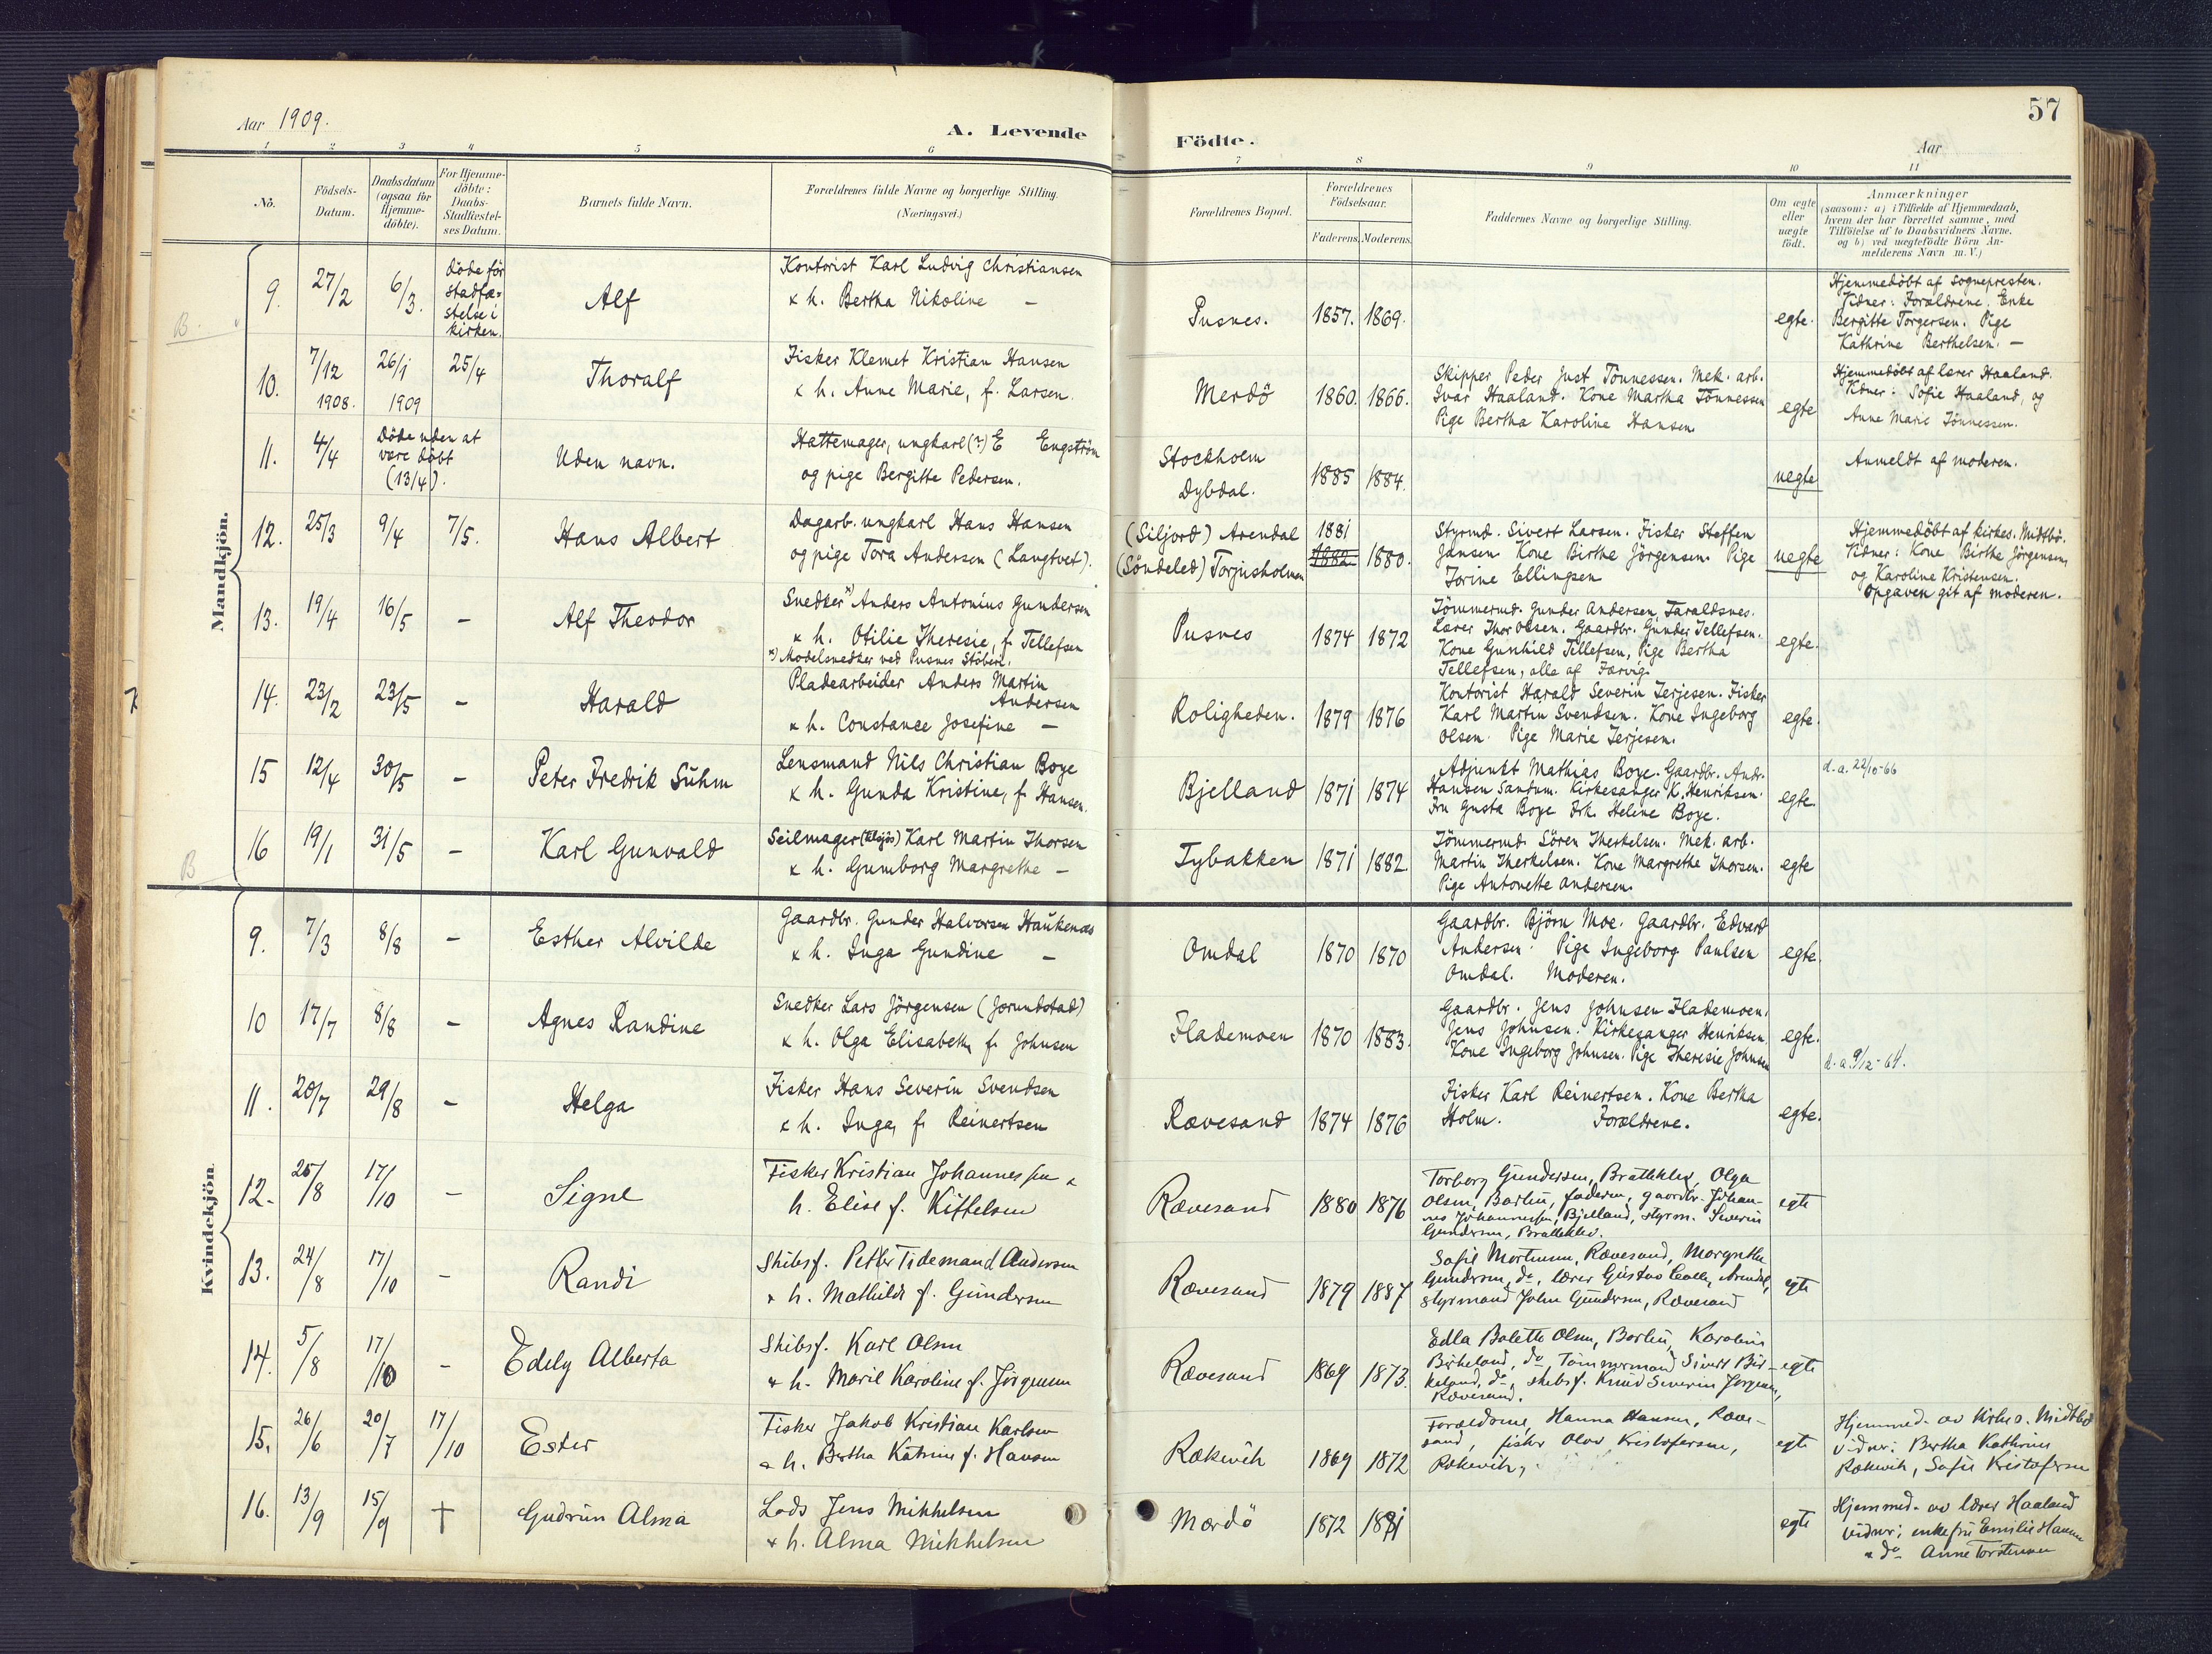 Aar 1909.
A. Levende
Födte.
57
Aar
1 2 3 4 5 6 7 8 9 10 11
No.
Födsels-
Datum.
Daabsdatum
(ogsaa for
Hjemme-
döbte).
For Hjemme-
döbte:
Daabs-
Stadfæstel-
ses Datum.
Barnets fulde Navn.
Forældrenes fulde Navne og borgerlige Stilling.
(Næringsvei.)
Forældrenes Bopæl.
Forældrenes
Födselsaar.
Faderens. Moderens.
Faddernes Navne og borgerlige Stilling.
Om ægte
eller
uægte
födt.
Anmærkninger
(saasom: a) i Tilfælde af Hjemmedaab,
hvem der har forrettet samme, med
Tilföielse af to Daabsvidners Navne.
og b) ved uægtefödte Börn An-
melderens Navn m. V.)
Mandkjön.
B.
9. 27/2 6/3.
döde för
stadfæ-
stelse i
kirken.
Alf
Kontorist Karl Ludvig Christiansen
& h. Bertha Nikoline —
Pusnes. 1857. 1869. egte.
Hjemmedöbt af sognepresten.
Vidner: Forældrene. Enke
Bergitte Torgersen. Pige
Kathrine Berthelsen. —
10. 7/12 1908. 26/1 1909 25/4
Thoralf
Fisker Klemet Kristian Hansen
& h. Anne Marie, f. Larsen.
Merdö 1860. 1866.
Skipper Peder Just Tönnessen. Mek. arb.
Ivar Haaland. Kone Martha Tönnessen
Pige Bertha Karoline Hansen
egte
Hjemmedöbt af lærer Haaland.
Vdner: Sofie Haaland, og
Anne Marie Tönnessen.
11. 4/4
Döde uden at
være döbt
(13/4).
Uden navn.
Hattemager, ungkarl (?) E Engström
og pige Bergitte Pedersen.
Stockholm
Dybdal.
1885 1884. uegte
Anmeldt af moderen.
12. 25/3 9/4 7/5.
Hans Albert
Dagarb. ungkarl Hans Hansen
og pige Tora Andersen (Langtvet).
(Siljord) Arendal
(Söndeled) Torjusholmen
1881
1882 1880.
Styrmd. Sivert Larsen. Fisker Steffen
Jansen Kone Birthe Jörgensen Pige
Torine Ellingsen
uegte
Hjemmedöbt af kirkes. Midtbö.
Vidner: Kone Birthe Jörgensen,
og Karoline Kristensen.
Opgaven git af moderen.
13. 19/4 16/5 —
Alf Theodor
Snedker*) Anders Antonius Gundersen
& h. Otilie Theresie, f. Tellefsen
*) Modelsnedker ved Pusnes Stöberi.
Pusnes 1874 1872
Tömmermd. Gunder Andersen Taraldsnes.
Lærer Thor Olsen. Gaardbr. Gunder Tellefsen.
Kone Gunhild Tellefsen, Pige Bertha
Tellefsen, alle af Færvig.
egte.
14. 23/2 23/5 —
Harald
Pladearbeider Anders Martin
Andersen
& h. Constance Josefine —
Roligheden. 1879 1876
Kontorist Harald Severin Terjesen. Fisker
Karl Martin Svendsen. Kone Ingeborg
Olsen. Pige Marie Terjesen.
egte.
15 12/4 30/5 —
Peter Fredrik Sühm
Lensmand Nils Christian Boye
& h. Gunda Kristine, f. Hansen.
Bjelland 1871 1874
Adjunkt Mathias Boye. Gaardbr. Andr.
Hansen Sandum. Kirkesanger K. Henriksen.
Fru Gusta Boye Frk. Heline Boye.
egte.
d. a. 22/10-66
B
16 19/1 31/5 —
Karl Gunvald
Seilmager (tilsjös) Karl Martin Thorsen
& h. Gunborg Margrethe —
Tybakken 1871 1882.
Tömmermd. Sören Therkelsen. Mek. arb.
Martin Therkelsen. Kone Margrethe Thorsen.
Pige Antonette Andersen.
egte
Kvindekjön.
9. 7/3 8/8 —
Esther Alvilde
Gaardbr. Gunder Halvorsen Haukenæs
& h. Inga Gundine —
Omdal 1870 1870
Gaardbr. Björn Moe. Gaardbr. Edvard
Andersen. Pige Ingeborg Paulsen
Omdal. Moderen.
egte.
10 17/7 8/8 —
Agnes Randine
Snedker Lars Jörgensen (Jorundstad)
& h. Olga Elisabeth, f. Johnsen
Flademoen 1870 1883.
Gaardbr. Jens Johnsen Flademoen.
Jens Johnsen. Kirkesanger Henriksen.
Kone Ingeborg Johnsen. Pige Theresie Johnsen
egte.
d. a. 9/12-64.
11. 20/7 29/8 —
Helga
Fisker Hans Severin Svendsen
& h. Inga, f. Reinertsen
Rævesand 1874 1876
Fisker Karl Reinertsen. Kone Bertha
Holm. Forældrene.
egte.
12. 25/8 17/10 —
Signe
Fisker Kristian Johannessen &
h. Elise f. Kittelsen
Rævesand 1880 1876
Torborg Gundersen, Bratteklev, Olga
Olsen, Barbu, faderen, gaardbr. Johan-
nes Johannessen, Bjelland, styrm. Severin
Gundersen, Bratteklev.
egte
13. 24/8 17/10 —
Randi
Skibsf. Petter Tidemand Andersen
& h. Mathilde f. Gundersen
Rævesand 1879 1887
Sofie Mortensen, Rævesand, Margrethe
Gundersen, do, lærer Gustav Calle, Arendal,
styrmand John Gundersen, Rævesand
egte
14. 5/8 17/10 —
Edely Alberta
Skibsf. Karl Olsen
& h. Marie Karoline f. Jörgensen
Rævesand 1869 1873.
Edla Bolette Olsen, Barbu, Karoline
Birkeland, do, Tömmermand Sivert Bir-
keland, do, skibsf. Knud Severin Jörgensen,
Rævesand.
egte
15. 26/6 20/7 17/10
Ester
Fisker Jakob Kristian Karlsen
& h. Bertha Katrine f. Hansen
Rækevik 1869 1872
Forældrene, Hanna Hansen, Ræve-
sand, fisker Olav Kristofersen,
Rækevik,
egte
Hjemmed. av kirkes. Midtbö
vidner: Bertha Kathrine
Rækevik, Sofie Kristofersen
16. 13/9 15/9 †
Gudrun Alma
Lods Jens Mikkelsen
& h. Alma Mikkelsen
Mærdö 1872 1881 egte
Hjemmed. av lærer Haaland
vidner: enkefru Emilie Hansen
& do Anne Torstensen